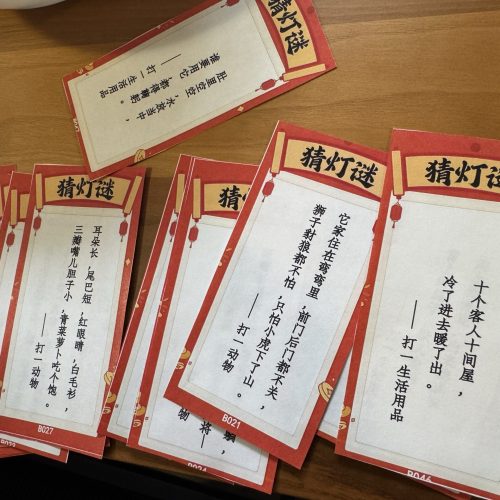 猜灯谜
肚里空空，水放当中，
谁要用它，都得鞠躬。
——打一生活用品
猜灯谜
耳朵长，尾巴短，红眼睛，白毛衫，
三瓣嘴儿胆子小，青菜萝卜吃个饱。
——打一动物
B027
猜灯
将
动物
B024
猜灯谜
它家住在弯弯里，前门后门都不关，
狮子豺狼都不怕，只怕小虎下了山。
——打一动物
B021
猜灯谜
十个客人十间屋，
冷了进去暖了出。
——打一生活用品
B046